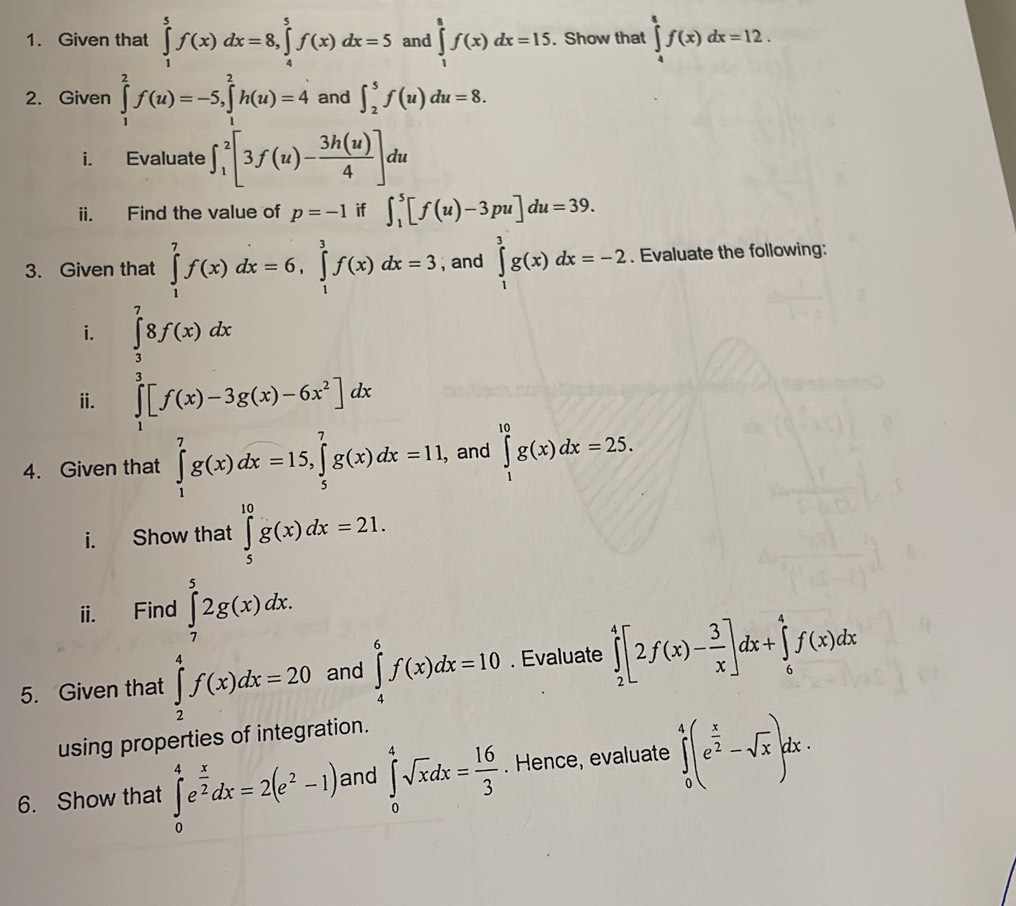 1. Given that ∫₁⁵ f(x) dx = 8, ∫₄⁵ f(x) dx = 5 and ∫₁⁸ f(x) dx = 15. Show that ∫₄⁸ f(x) dx = 12.
2. Given ∫₁² f(u) = −5, ∫₁² h(u) = 4 and ∫₂⁵ f(u) du = 8.
i. Evaluate ∫₁² [3f(u) − 3h(u)/4] du
ii. Find the value of p = −1 if ∫₁⁵ [f(u) − 3pu] du = 39.
3. Given that ∫₁⁷ f(x) dx = 6, ∫₁³ f(x) dx = 3, and ∫₁³ g(x) dx = −2. Evaluate the following:
i. ∫₃⁷ 8f(x) dx
ii. ∫₁³ [f(x) − 3g(x) − 6x²] dx
4. Given that ∫₁⁷ g(x) dx = 15, ∫₅⁷ g(x) dx = 11, and ∫₁¹⁰ g(x) dx = 25.
i. Show that ∫₅¹⁰ g(x) dx = 21.
ii. Find ∫₇⁵ 2g(x) dx.
5. Given that ∫₂⁴ f(x)dx = 20 and ∫₄⁶ f(x)dx = 10 . Evaluate ∫₂⁴ [2f(x) − 3/x] dx + ∫₆⁴ f(x)dx
using properties of integration.
6. Show that ∫₀⁴ e^(x/2) dx = 2(e² − 1) and ∫₀⁴ √x dx = 16/3 . Hence, evaluate ∫₀⁴ (e^(x/2) − √x) dx .